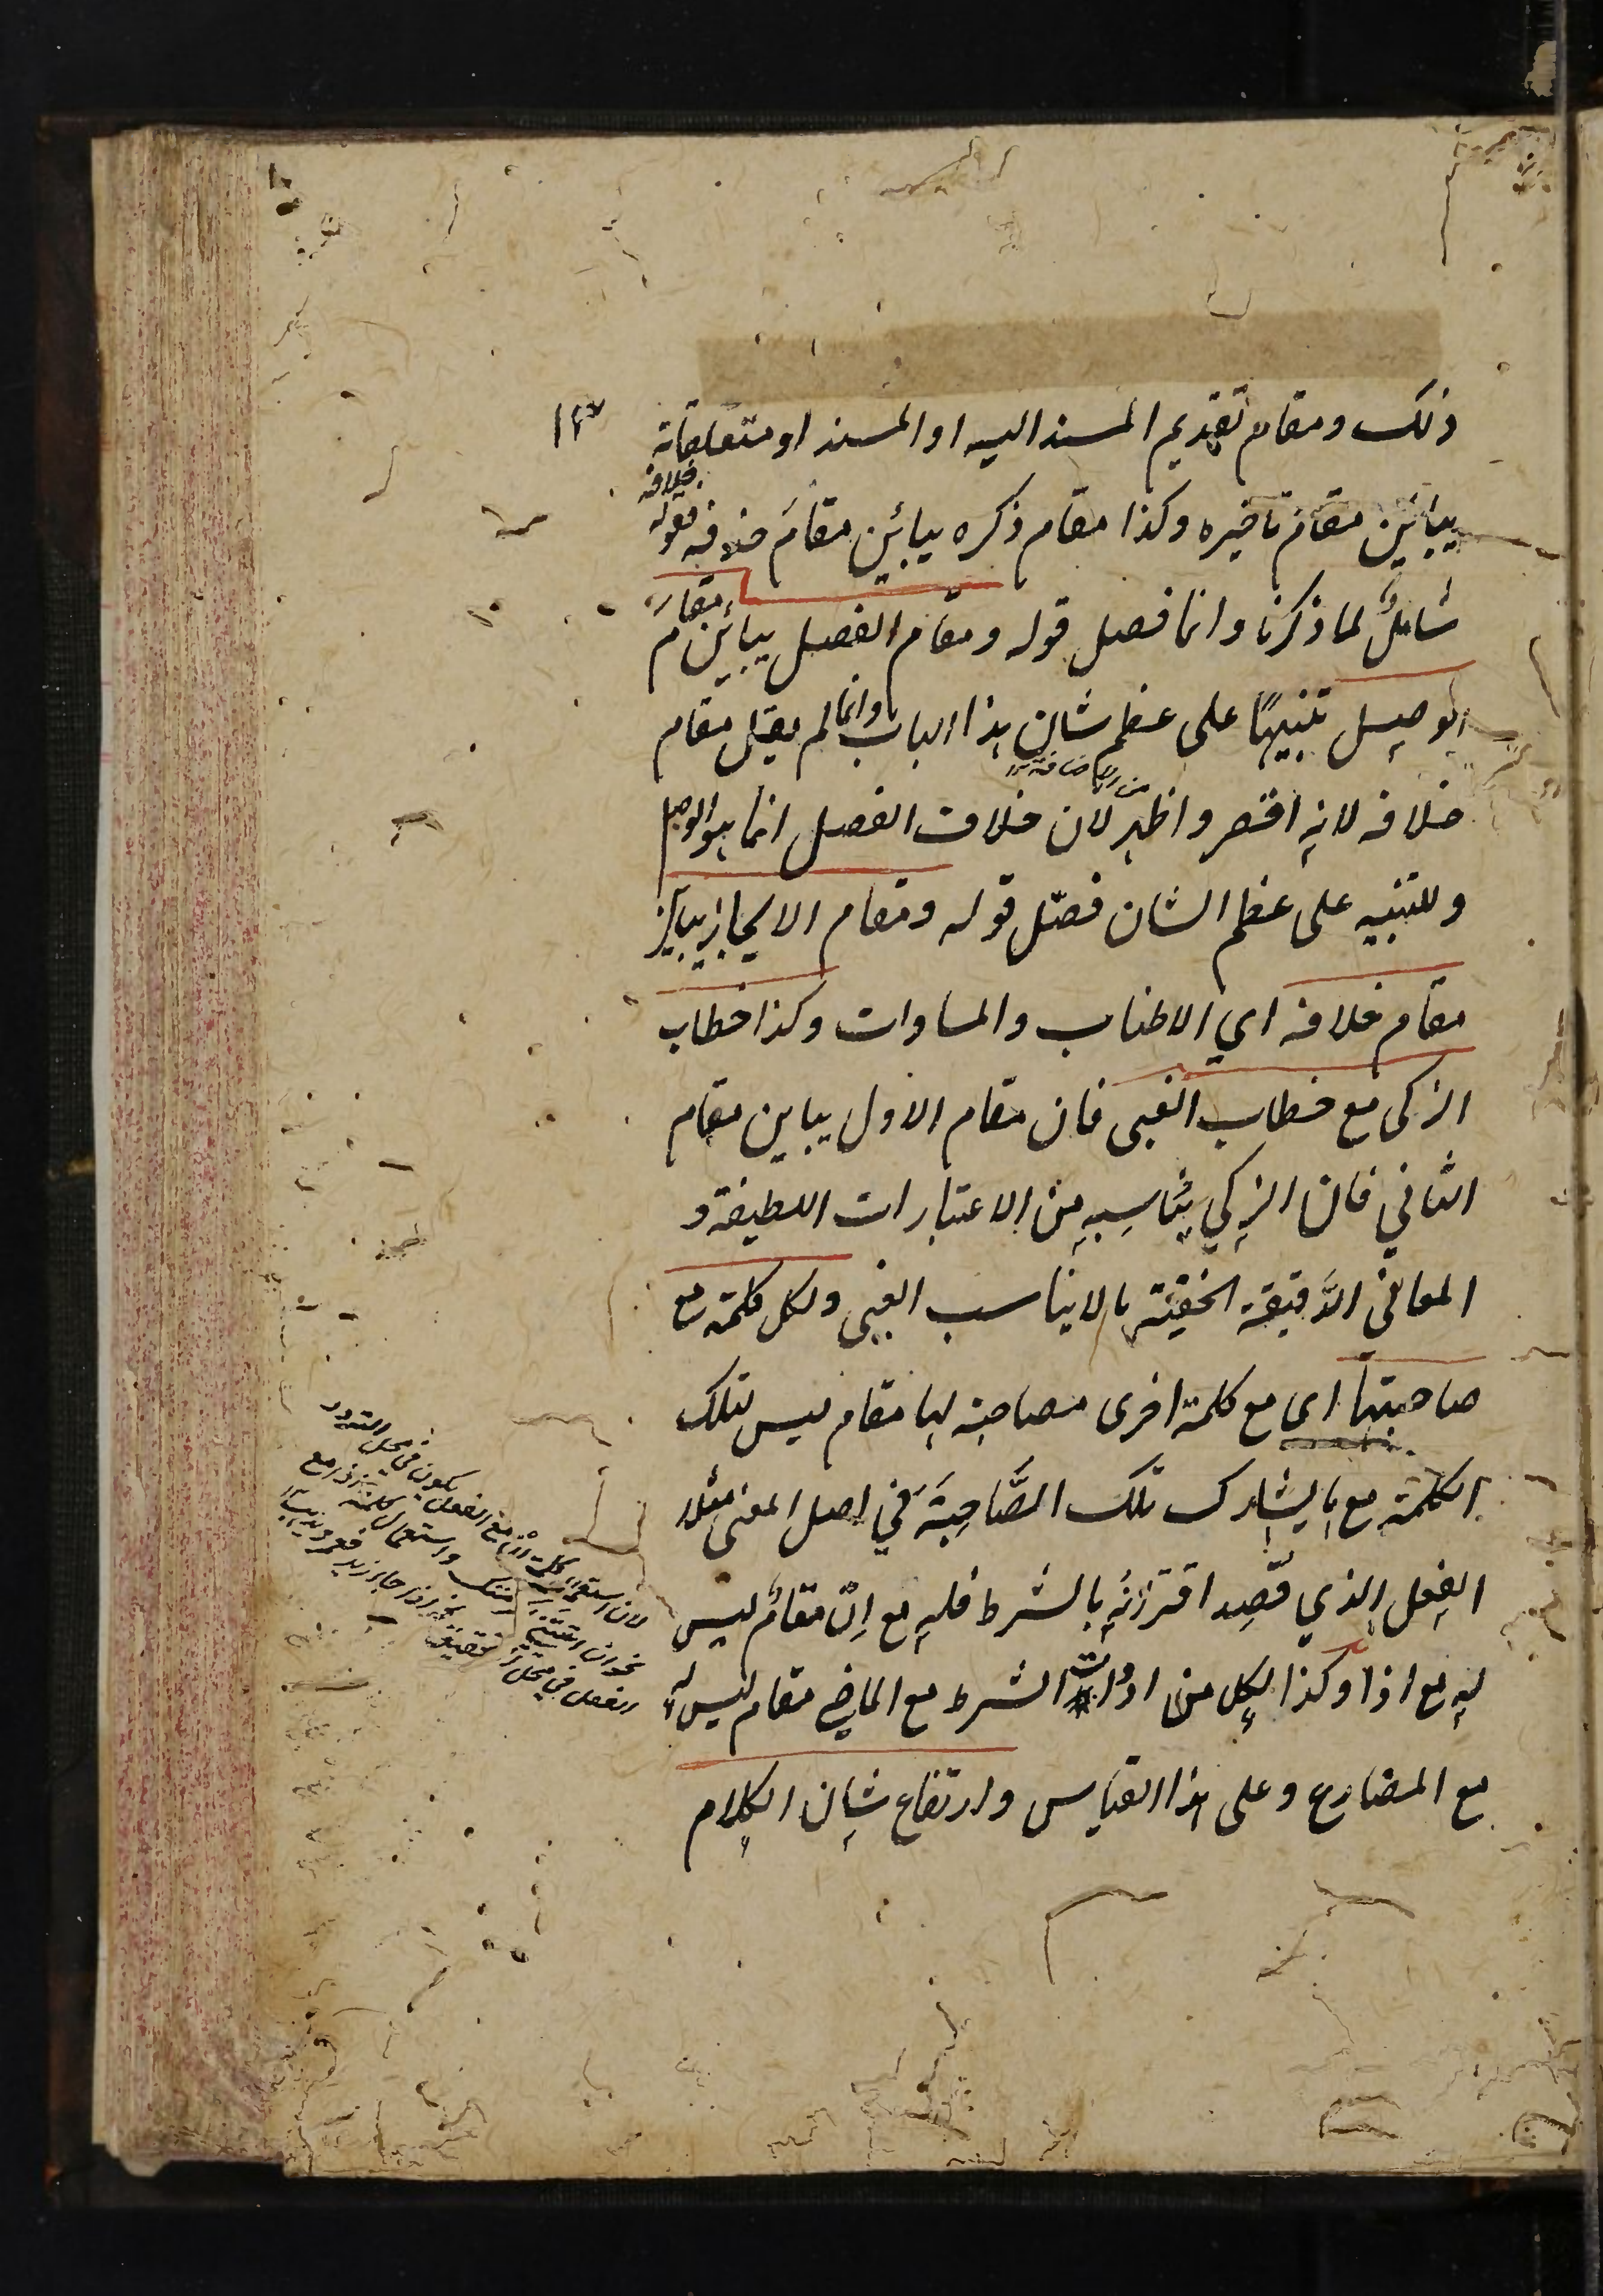 ذلك ومقام تقديم المسند اليه او المسند او متعلقاته
يباين مقام تاخيره وكذا مقام ذكره يباين مقام حذفه فقوله
خلافه
شامل لما ذكرنا وانما فصل قوله ومقام الفصل يباين مقام
الوصل تنبيها على عظم شان هذا الباب وانما لم يقل مقام
خلافه لانه اخصر واظهر لان خلاف الفصل انما هو الوصل
وللتنبيه على عظم الشان فصل قوله ومقام الايجاز يباين
مقام خلافه اي الاطناب والمساوات وكذا خطاب
الزكي مع خطاب الغبى فان مقام الاول يباين مقام
الثاني فان الزكي يناسبه من الاعتبارات اللطيفة و
المعاني الدقيقة الخفية ما لا يناسب الغبى ولكل كلمة مع
صاحبتها اى مع كلمة اخرى مصاحبة لها مقام ليس لتلك
الكلمة مع ما يشارك تلك المصاحبة في اصل المعنى مثلا
الفعل الذي قصد اقترانه بالشرط فله مع ان مقام ليس
له مع اذا وكذا لكل من ادوات الشرط مع الماضي مقام ليس له
مع المضارع وعلى هذا القياس وارتفاع شان الكلام
لان استعمال كلمة ان مع الفعل يكون في محل التردد
واستعمال كلمة اذا مع
الفعل في محل